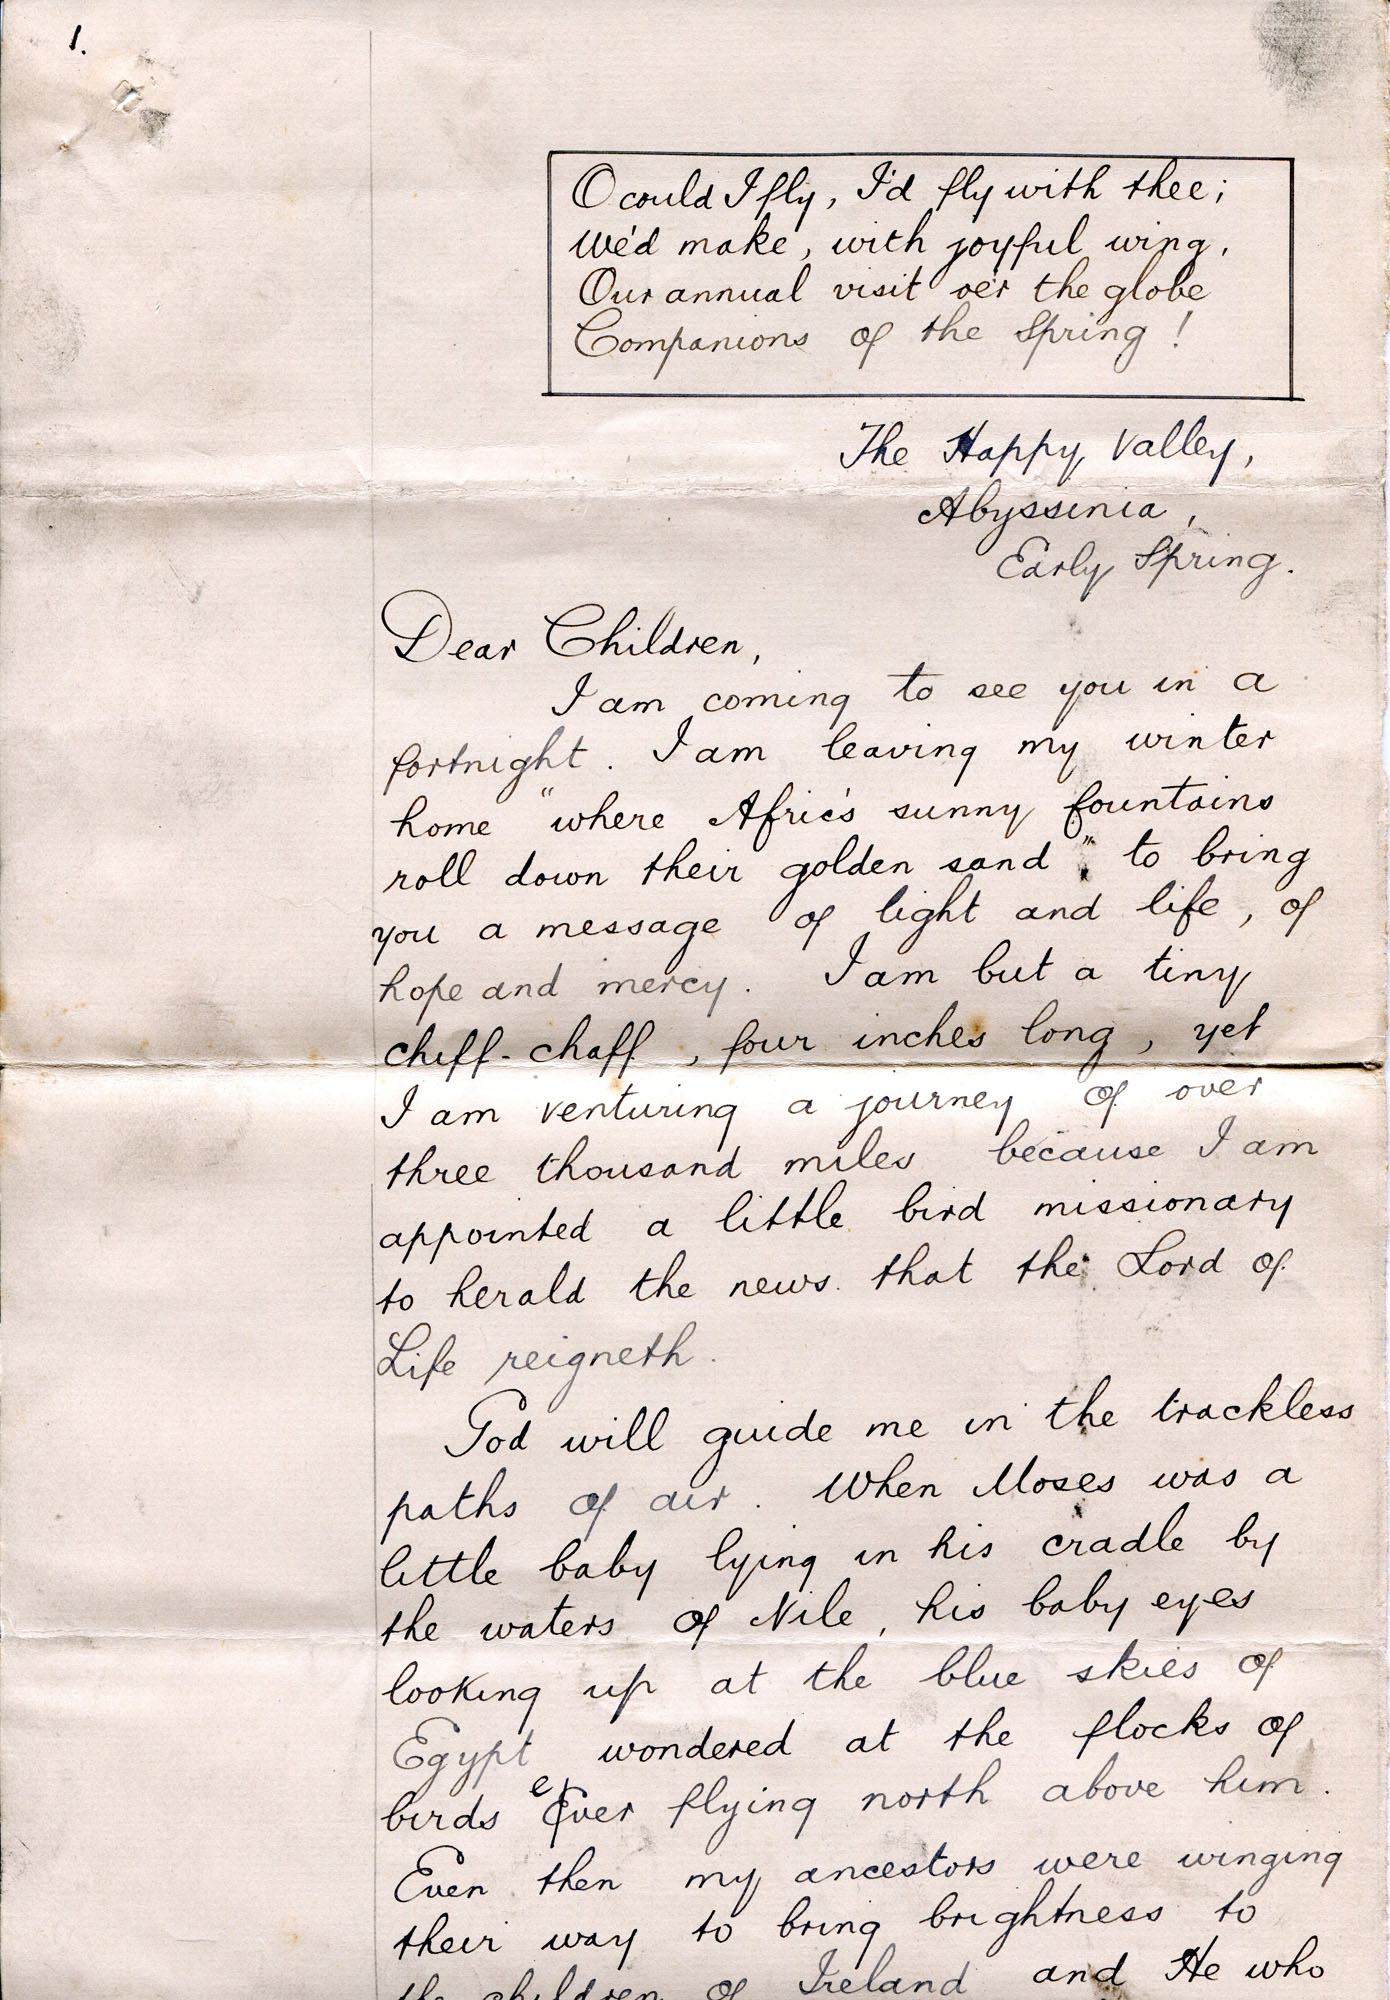 1.
O could I fly, I'd fly with thee;
We'd make, with joyful wing,
Our annual visit o'er the globe
Companions of the Spring!
The Happy Valley,
Abyssinia,
Early Spring.
Dear Children,
I am coming to see you in a
fortnight. I am leaving my winter
home "where Afric's sunny fountains
roll down their golden sand" to bring
you a message of light and life, of
hope and mercy. I am but a tiny
chiff-chaff, four inches long, yet
I am venturing a journey of over
three thousand miles because I am
appointed a little bird missionary
to herald the news that the Lord of
Life reigneth.
God will guide me in the trackless
paths of air. When Moses was a
little baby lying in his cradle by
the waters of Nile, his baby eyes
looking up at the blue skies of
Egypt wondered at the flocks of
birds ever flying north above him.
Even then my ancestors were winging
their way to bring brightness to
the children of Ireland and He who